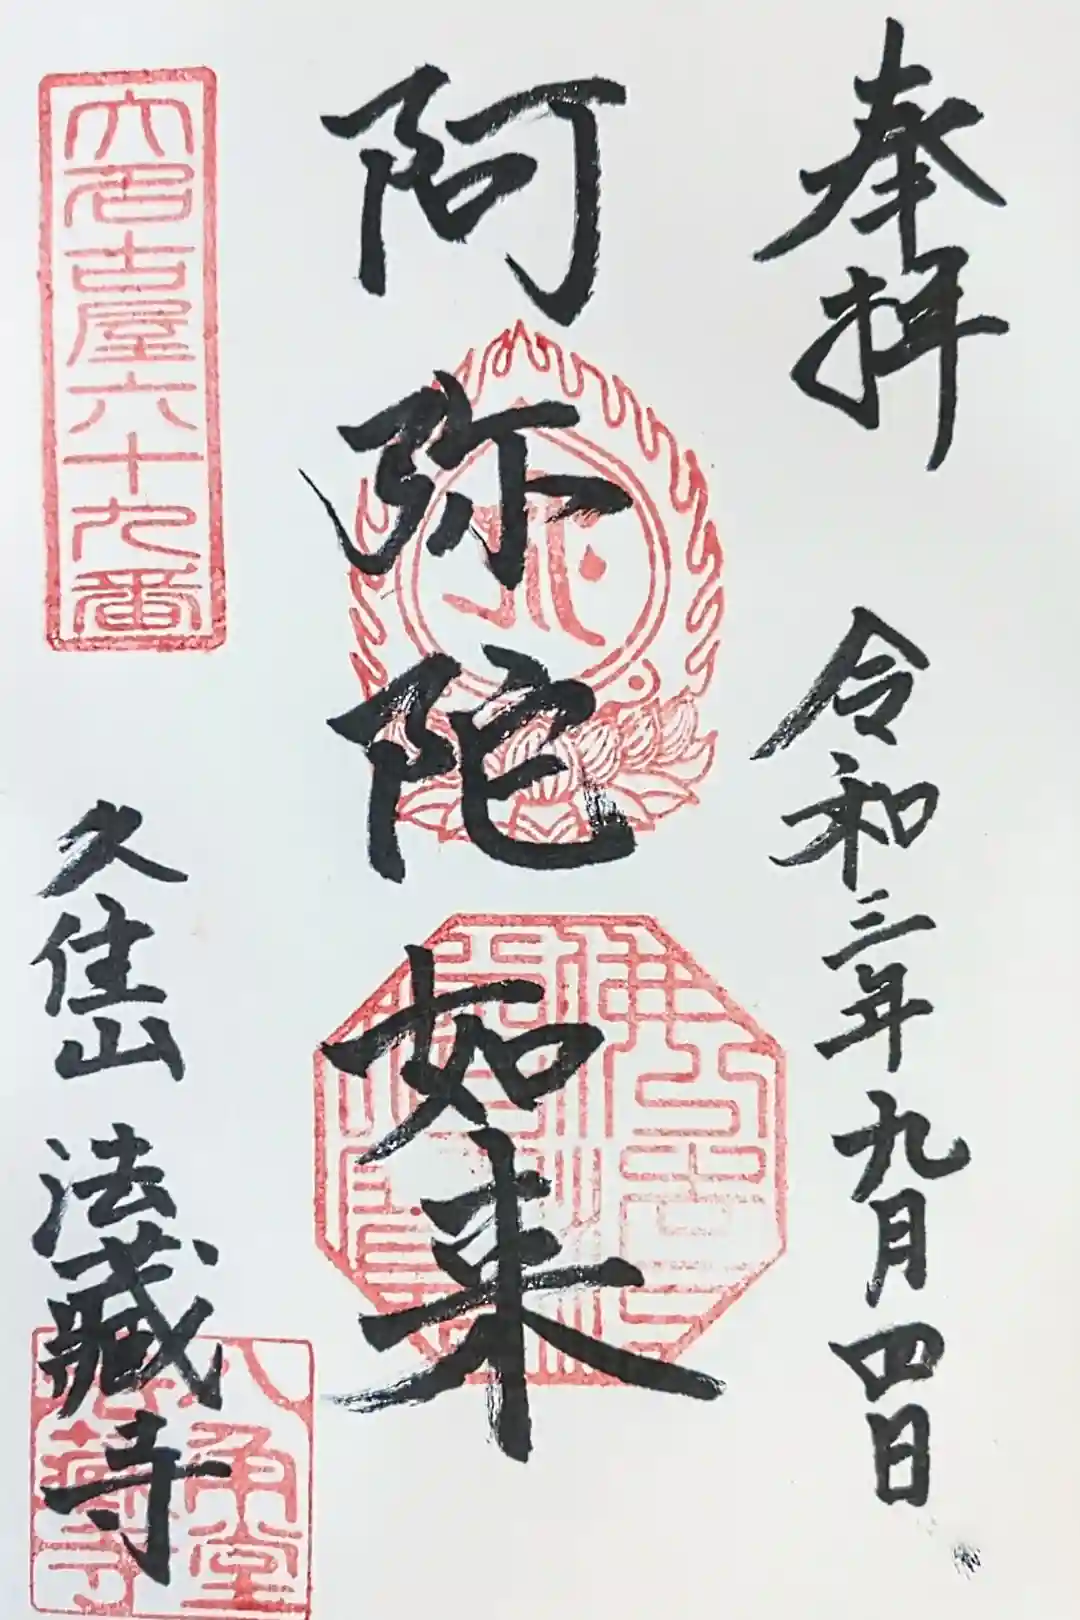 奉拝
令和三年九月四日
阿弥陀如来
大名古屋六十九番
久住山 法蔵寺
八角堂
法蔵寺